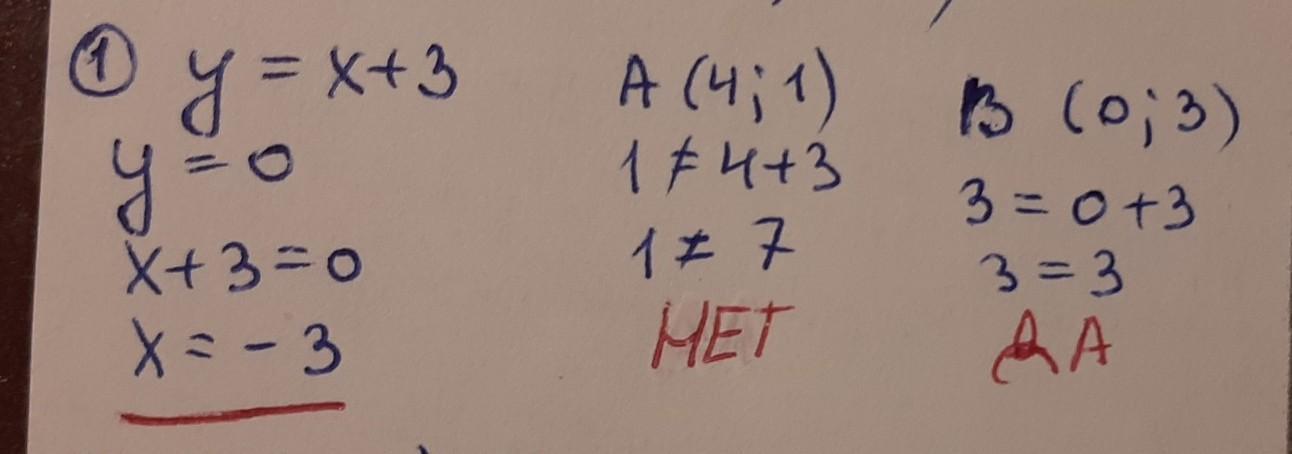 ① y = x+3
y = 0
x+3=0
x = - 3
A (4; 1)
1 ≠ 4+3
1 ≠ 7
НЕТ
B (0; 3)
3 = 0+3
3 = 3
ДА